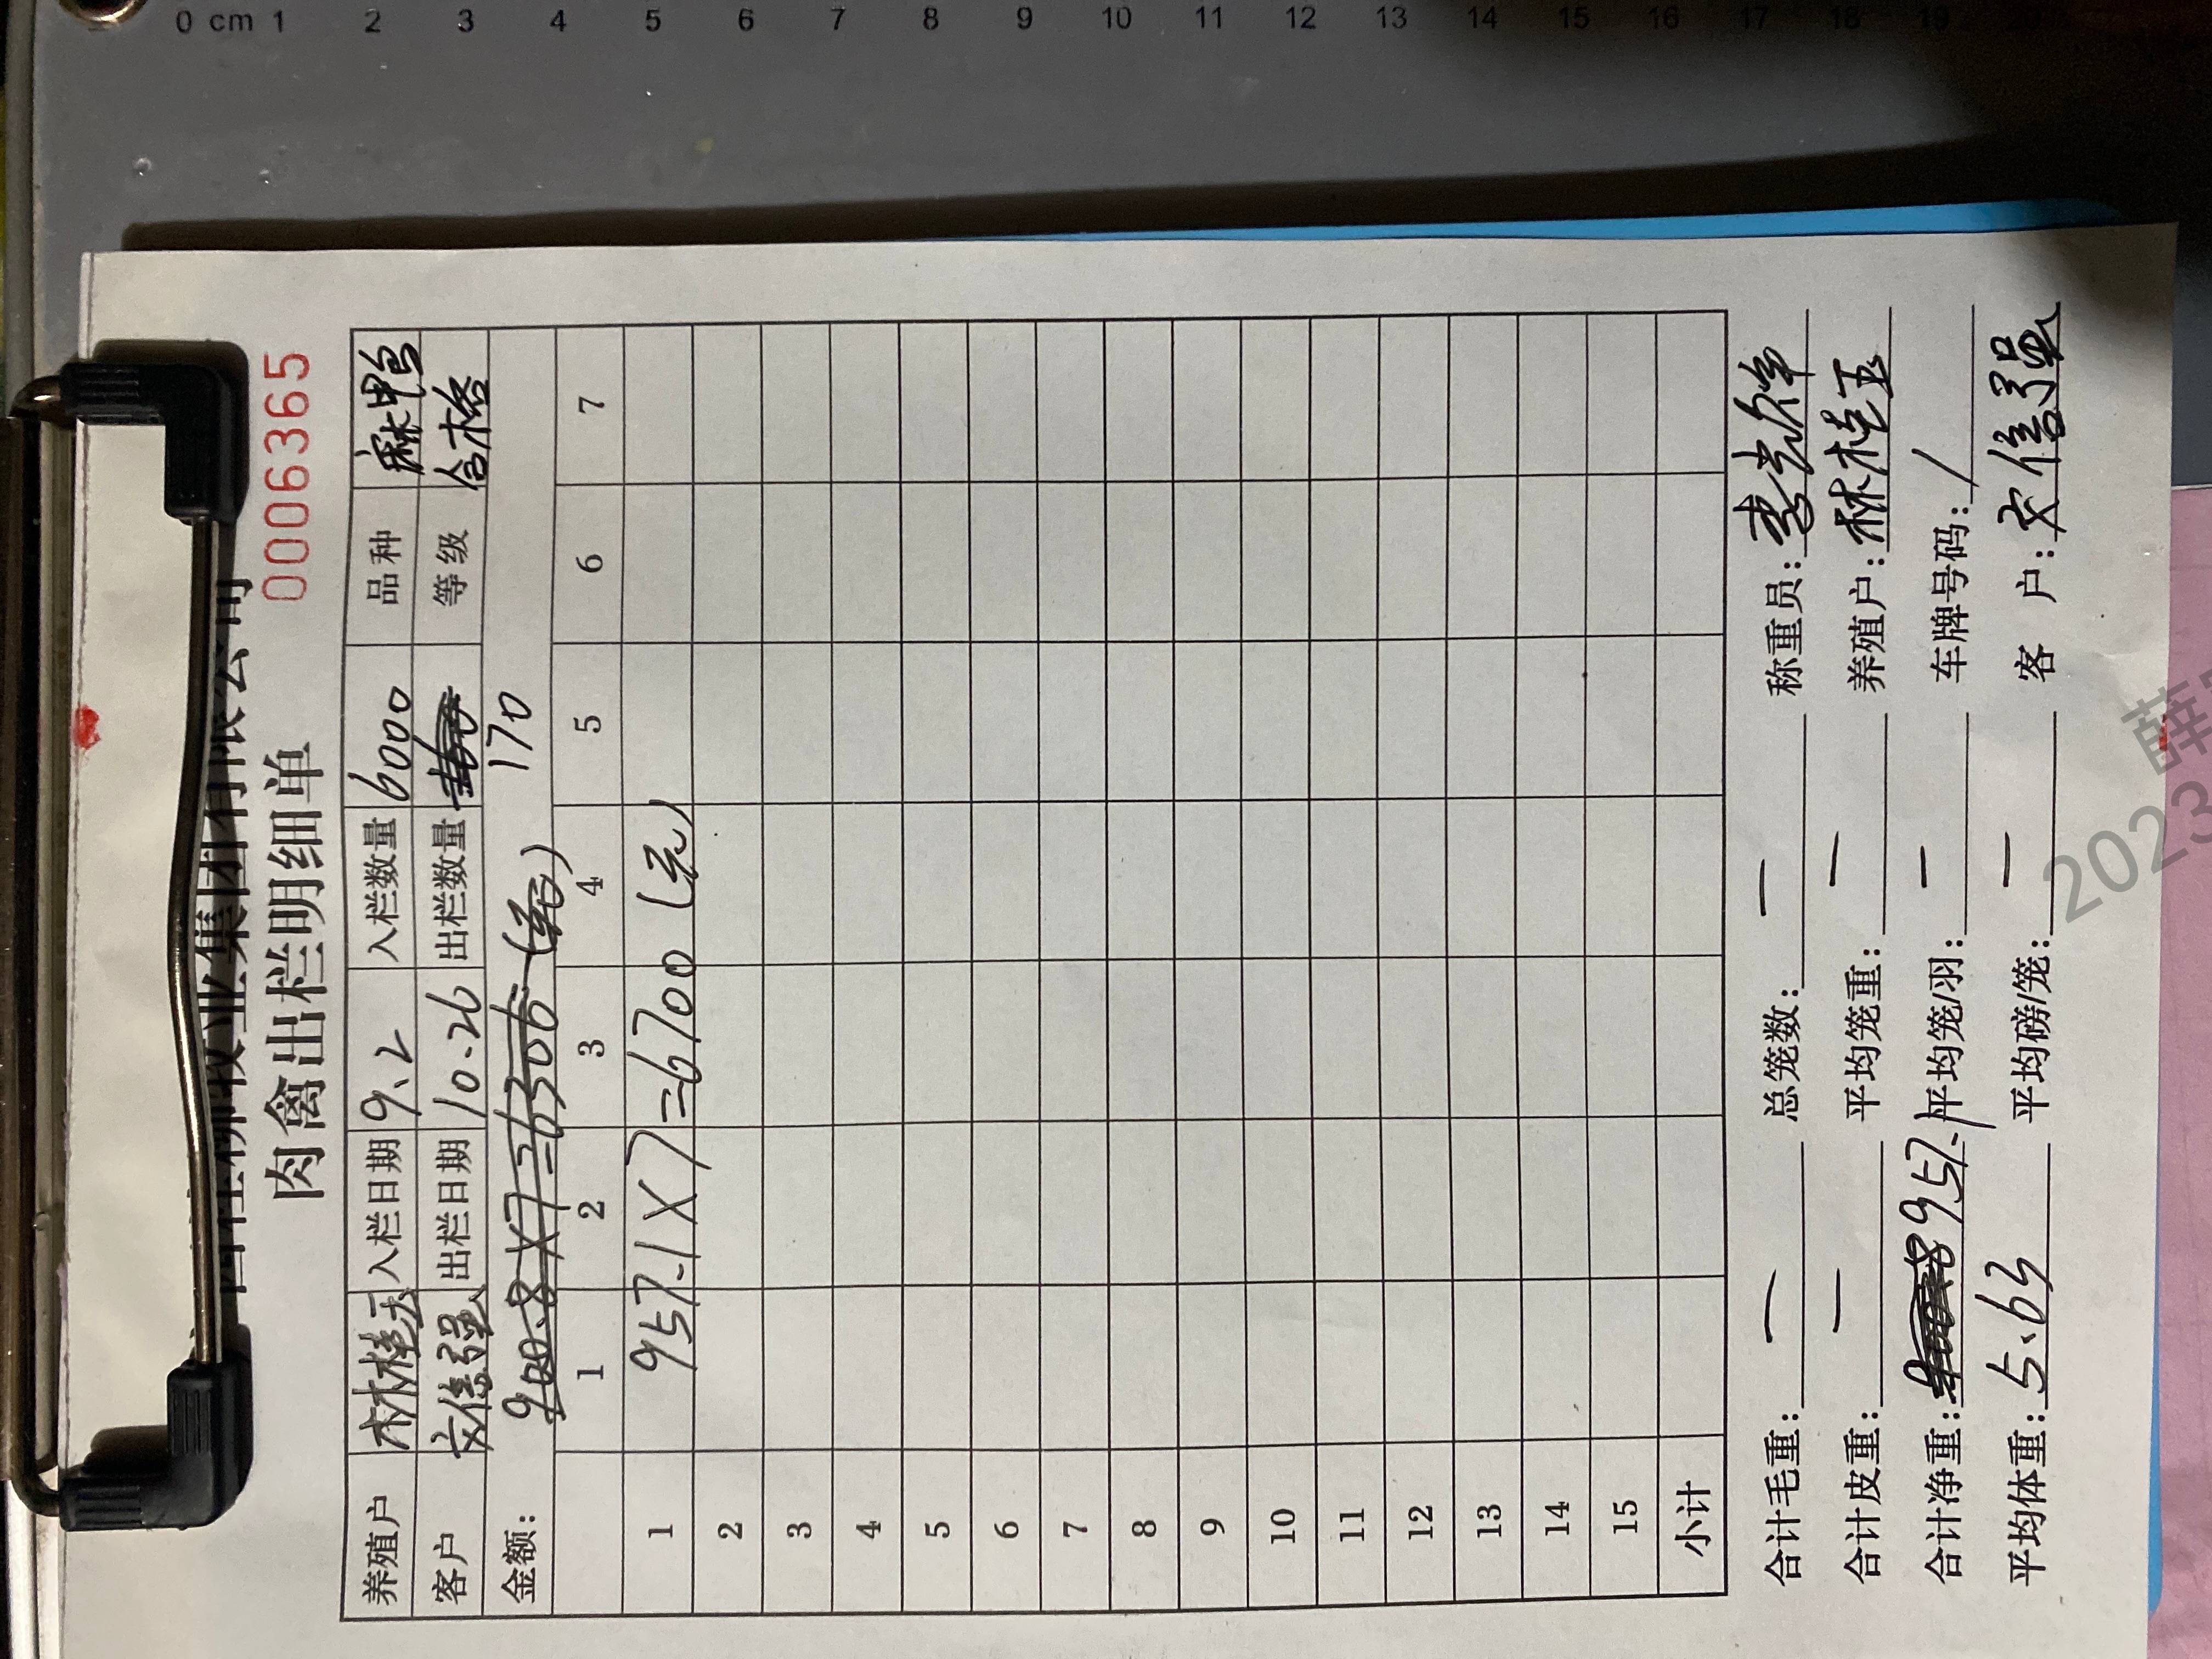 0 cm 1 2 3 4 5 6 7 8 9 10 11 12 13 14 15 16 17 18 19
牧业集团有限公司
肉禽出栏明细单 0006365
养殖户 林桂玉 入栏日期 9.2 入栏数量 6000 品种 麻鸭
客户 文信强 出栏日期 10.26 出栏数量 等级 合格
金额: 900.8X7=6306 (元) 170
1 2 3 4 5 6 7
1 957.1X7=6700 (元)
2
3
4
5
6
7
8
9
10
11
12
13
14
15
小计
合计毛重: — 总笼数: — 称重员: 李
合计皮重: — 平均笼重: — 养殖户: 林桂玉
合计净重: 957.1 平均笼/羽: — 车牌号码: /
平均体重: 5.63 平均磅/笼: — 客 户: 文信强
薛
2023